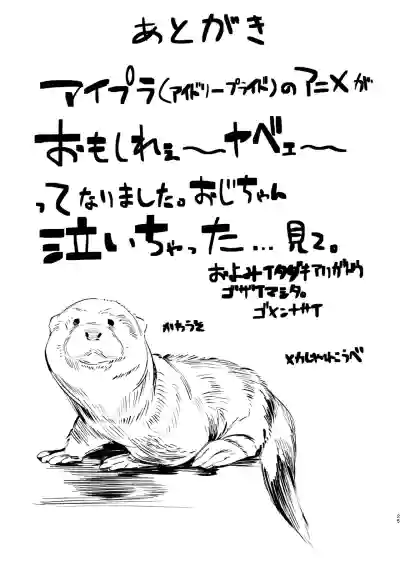 あとがき
アイプラ(アイドリープライド)のアニメが
おもしれぇ〜ヤベェ〜
ってなりました。おじちゃん
泣いちゃった…見て。
およみイタダキアリガトウ
ゴザイマシタ。
ゴメンナサイ
かわうそ